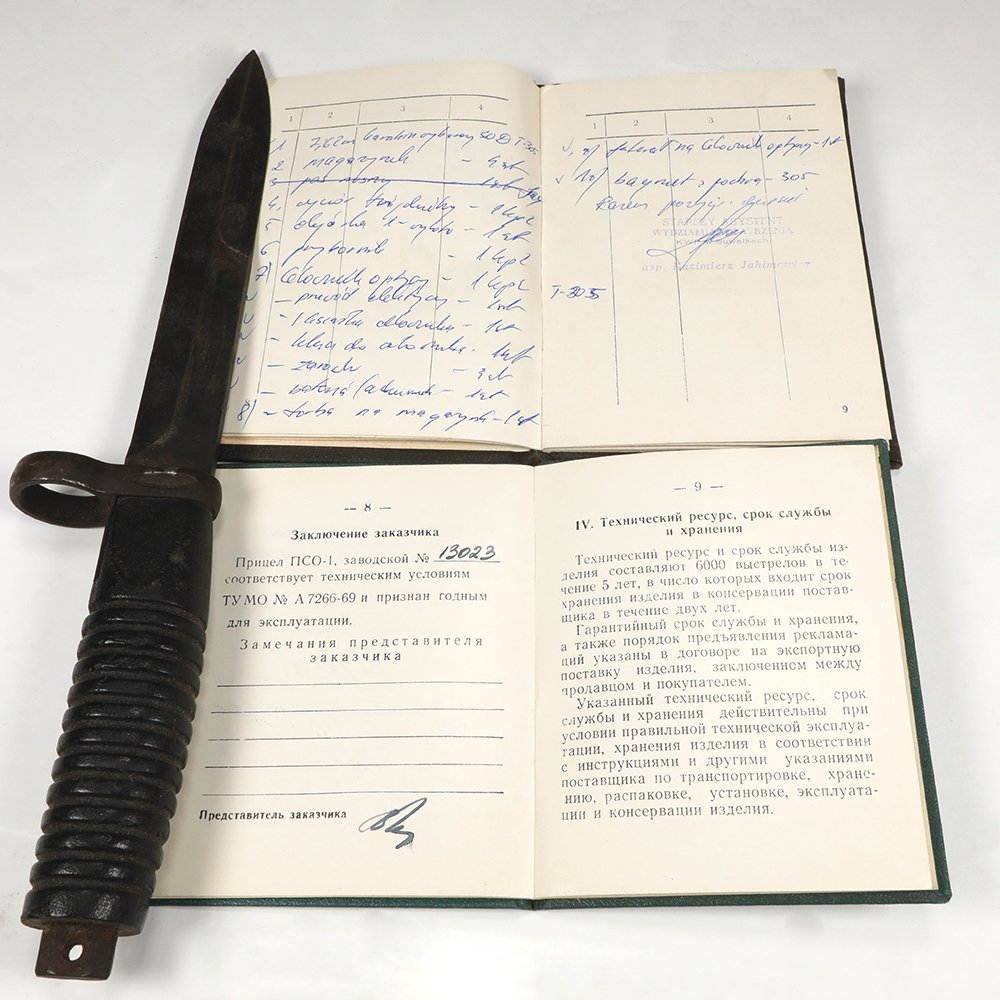 1 2 3 4
1 7,62 mm karabin wyborowy SWD T-305
2 magazynek - 4 szt
3 pas nośny 1 szt
4. - 1 kpl
5 - 1 szt
6 przybornik - 1 kpl
7) Celownik optyczny - 1 kpl
- przewód elektryczny - 1 szt
- celownika - 1 szt
- do celownika. 1 szt
- żarówki - szt
- szt
8) - torba na magazynki - 1 szt
1 2 3 4
v 9) futerał na celownik optyczny - 1 szt
v 10) bagnet z pochwą - 305
Razem pozycji dziesięć
STARSZY ASYSTENT
asp. Kazimierz
T-305
9
— 8 —
Заключение заказчика
Прицел ПСО-1, заводской № 13023
соответствует техническим условиям
ТУ МО № А 7266-69 и признан годным
для эксплуатации.
Замечания представителя
заказчика
Представитель заказчика
— 9 —
IV. Технический ресурс, срок службы
и хранения
Технический ресурс и срок службы из-
делия составляют 6000 выстрелов в те-
чение 5 лет, в число которых входит срок
хранения изделия в консервации постав-
щика в течение двух лет.
Гарантийный срок службы и хранения,
а также порядок предъявления реклама-
ций указаны в договоре на экспортную
поставку изделия, заключенном между
продавцом и покупателем.
Указанный технический ресурс, срок
службы и хранения действительны при
условии правильной технической эксплуа-
тации, хранения изделия в соответствии
с инструкциями и другими указаниями
поставщика по транспортировке, хране-
нию, распаковке, установке, эксплуата-
ции и консервации изделия.